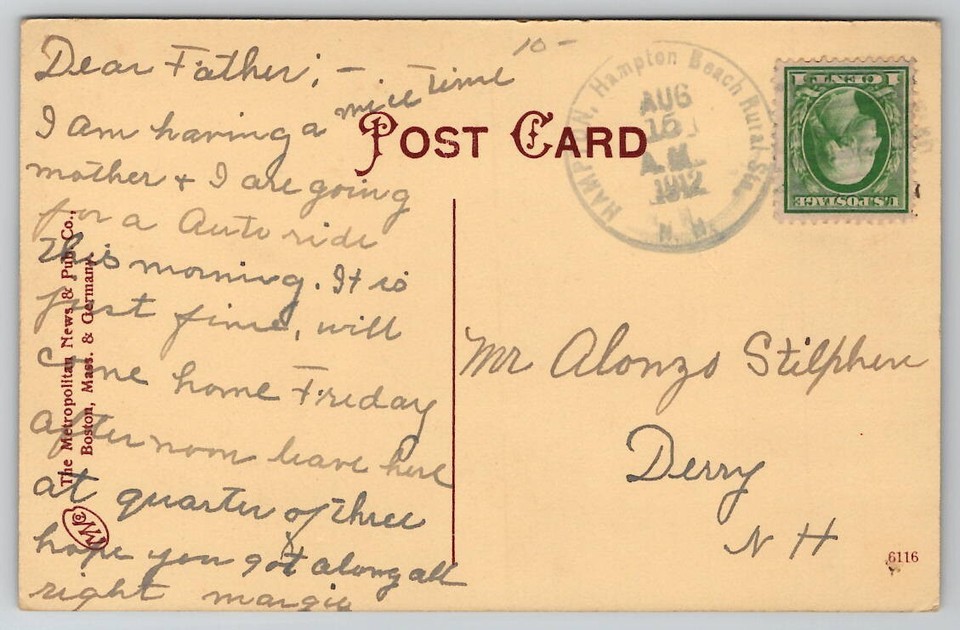 10-
Dear Father; -
I am having a nice time
mother + I are going
for a Auto ride
this morning. It is
just fine, will
come home Friday
afternoon leave here
at quarter of three
hope you got along all
right margie
POST CARD
HAMPTON, Hampton Beach Rural Sta.
AUG
15
A.M.
1912
N.H.
1 CENT 1
U.S. POSTAGE
Mr Alonzo Stilphen
Derry
N H
The Metropolitan News & Pub. Co.,
Boston, Mass. & Germany.
6116